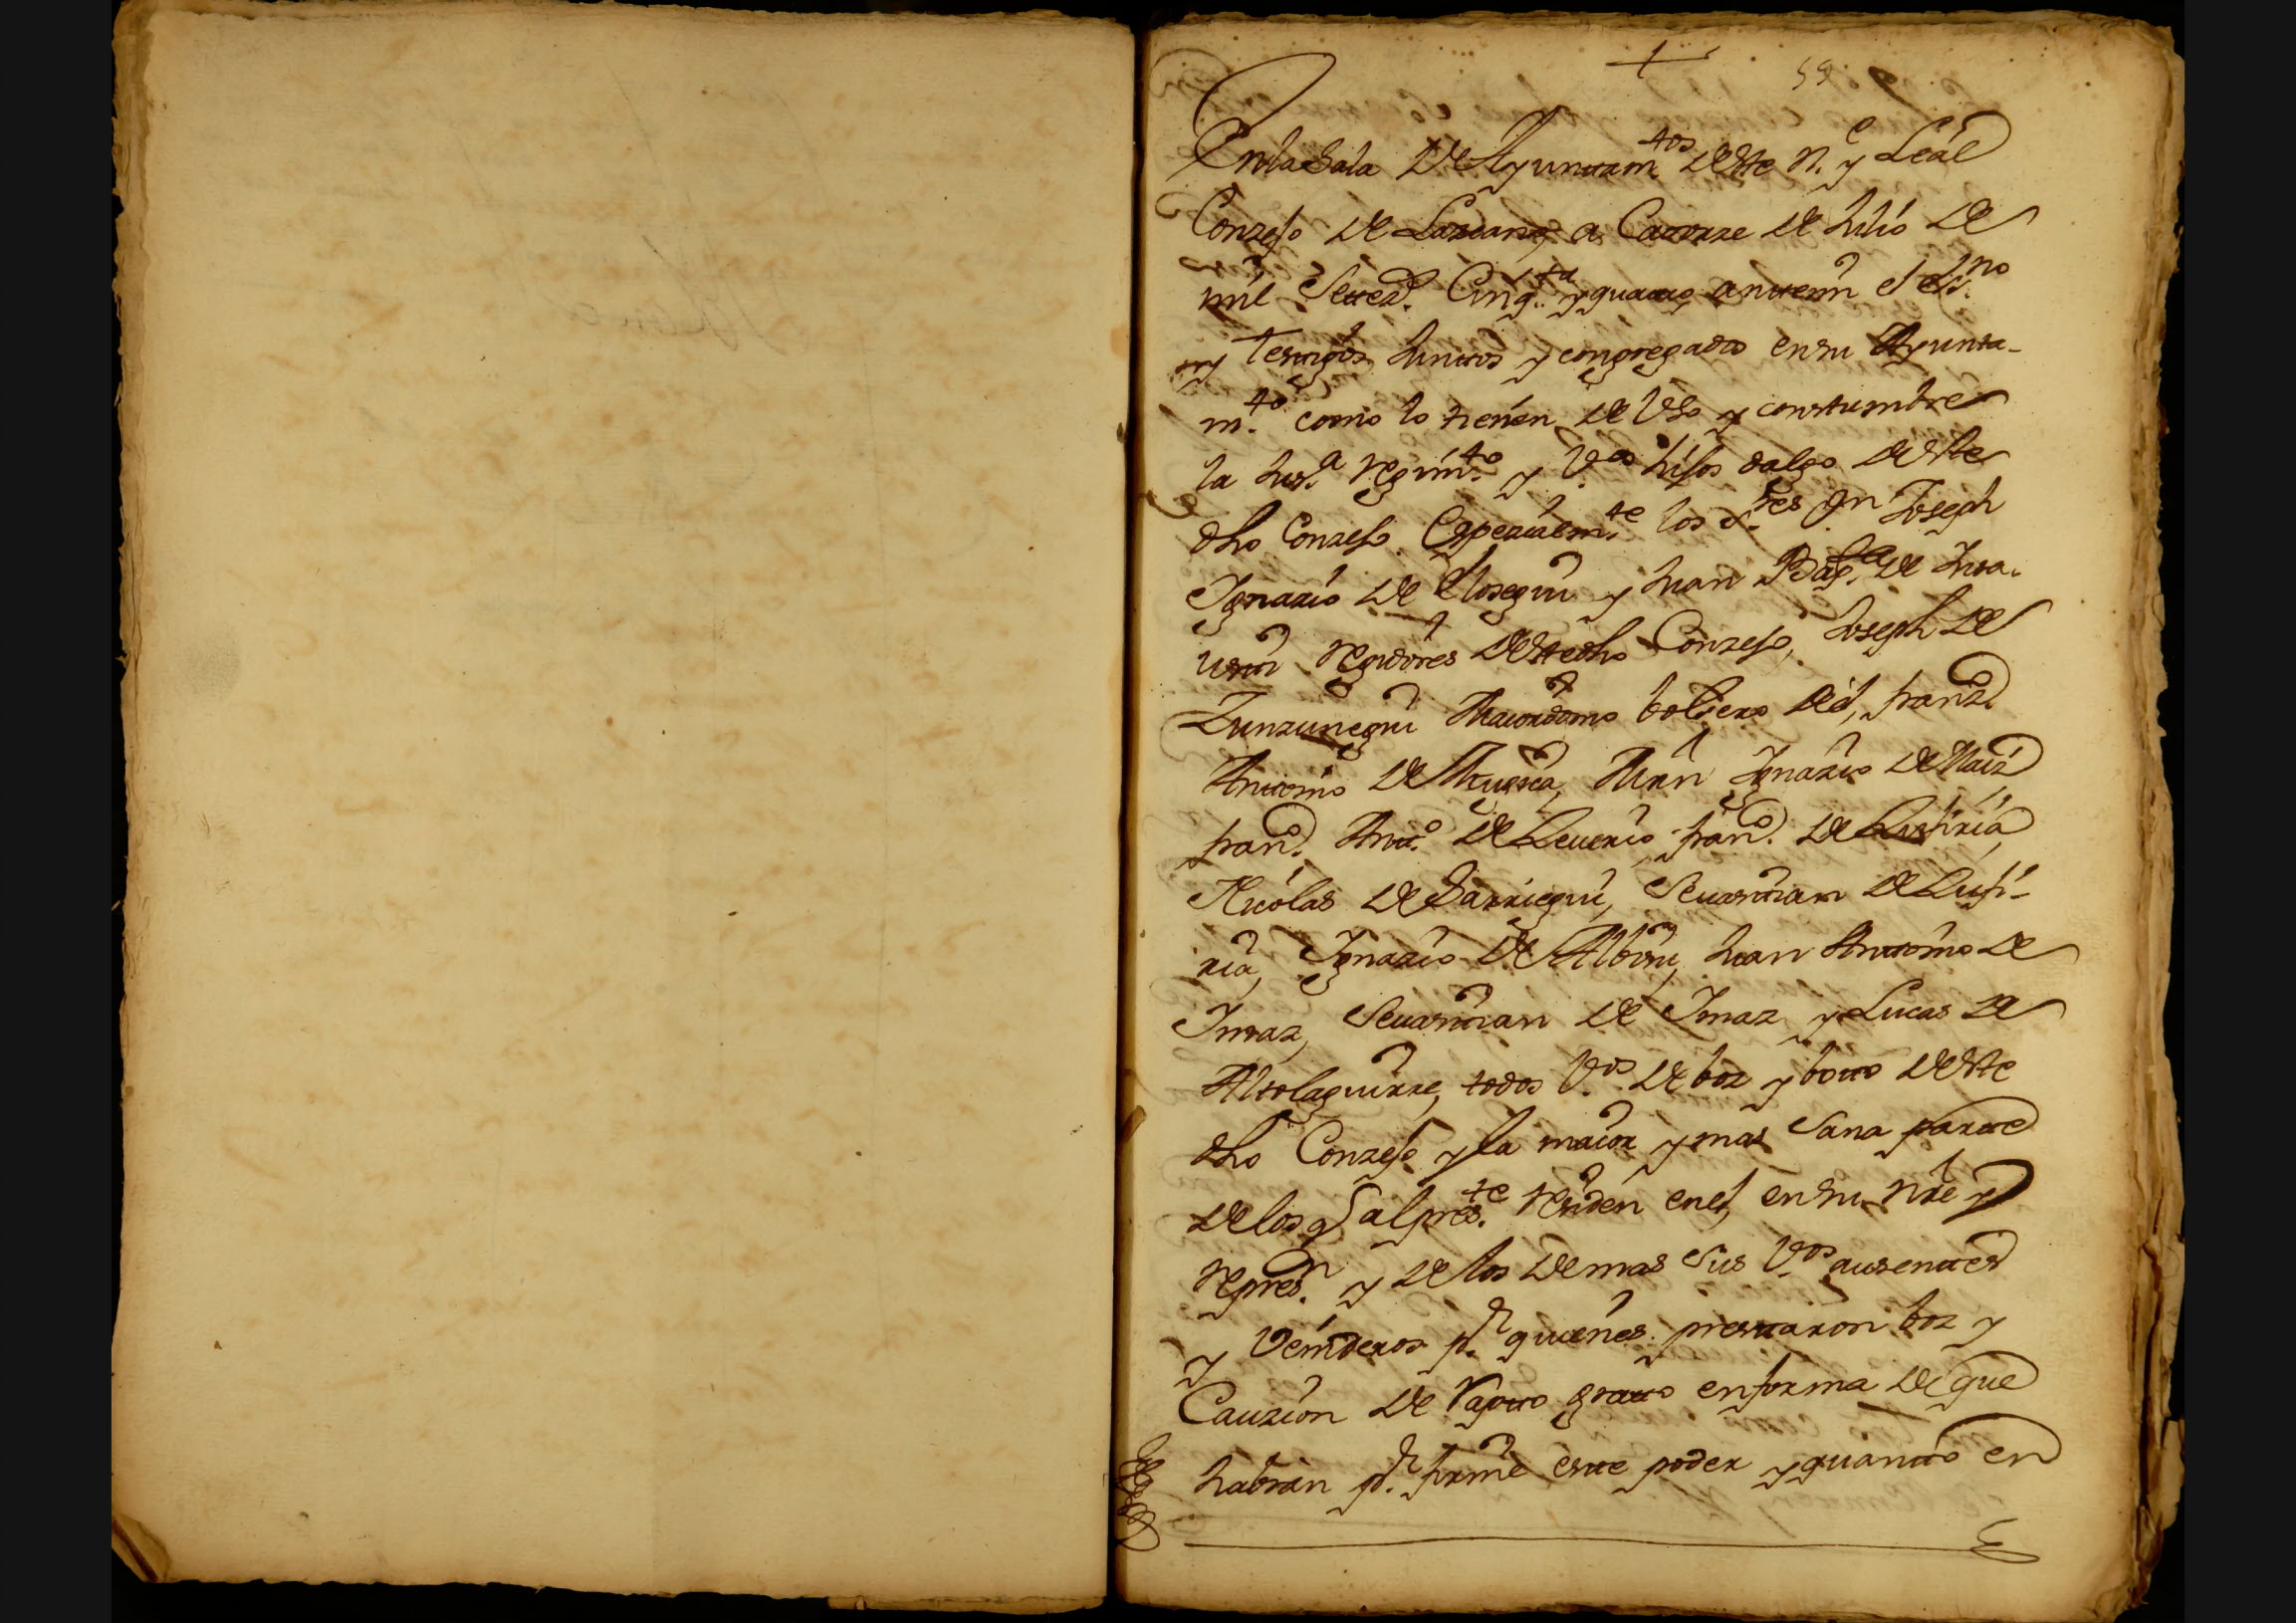 + 59
En la Sala de Ayuntam.tos deste N.e y Leal
Conzejo de Lazcano, a Catorze de Julio de
mil Setez.s Cinq.ta y quatro, antemi el ess.no
y testigos Juntos y congregados en su Ayunta-
m.to como lo tienen de Vso y constumbre
la Jus.a Regim.to y V.os hijos dalgo deste
dho Conzejo. Espezialm.te los s.res Dn Joseph
Ignazio de Elosegui y Juan Bap.ta de
Regidores deste dho Conzejo, Joseph de
Zunzunegui Maiordomo bolsero del, franz.co
Antonio de Mujica, Mrn Ignazio de Maiz
fran.co Ant.o de Zeuerio, fran.co de Zufiria,
Nicolas de Barriegui, Seuastian de Zufi-
ria, Ignazio de Albisu, Juan Antonio de
Imaz, Seuastian de Imaz y Lucas de
Altolaguirre, todos V.os de boz y boto deste
dho Conzejo y la maior y mas Sana parte
de los q al pres.te residen en el, en su nre y
repres.n y de los demas sus V.os ausentes
y Venideros p.r quienes prestaron boz y
Cauzion de rapto grato en forma de que
habran p.r firme este poder y quanto en